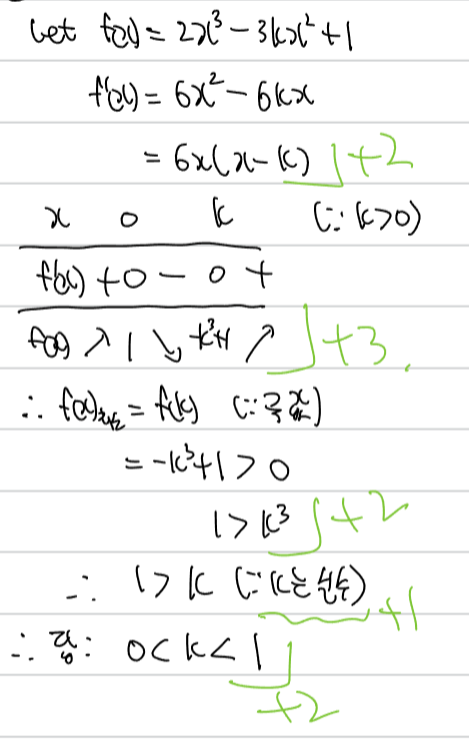 Let f(x) = 2x³ - 3kx² + 1
f'(x) = 6x² - 6kx
= 6x(x-k) +2
x 0 k (∵ k>0)
f'(x) + 0 - 0 +
f(x) ↗ 1 ↘ -k³+1 ↗ +3
∴ f(x)최소 = f(k) (∵ 극소)
= -k³+1 > 0
1 > k³ +2
∴ 1 > k (∵ k는 실수) +1
∴ 답: 0 < k < 1
+2